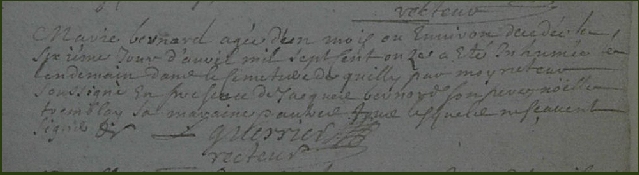 recteur
Marie bernard agée d'en mois ou Environ decedée le
sixième Jour d'avril mil sept sent onze a Eté Inhumée le
lendemain dans le semeture de quelly par moy recteur
soussigné En presence de Jacque bernard son pere noëlle
tremblay sa maraine lesquels ne scavent
signe &
guerrier
recteur